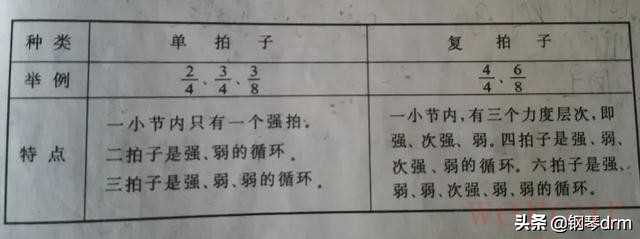 种类 单拍子 复拍子
举例 2/4、3/4、3/8 4/4、6/8
特点
一小节内只有一个强拍。
二拍子是强、弱的循环。
三拍子是强、弱、弱的循环。
一小节内,有三个力度层次,即
强、次强、弱。四拍子是强、弱、
次强、弱的循环。六拍子是强、
弱、弱、次强、弱、弱的循环。
头条 @钢琴drm